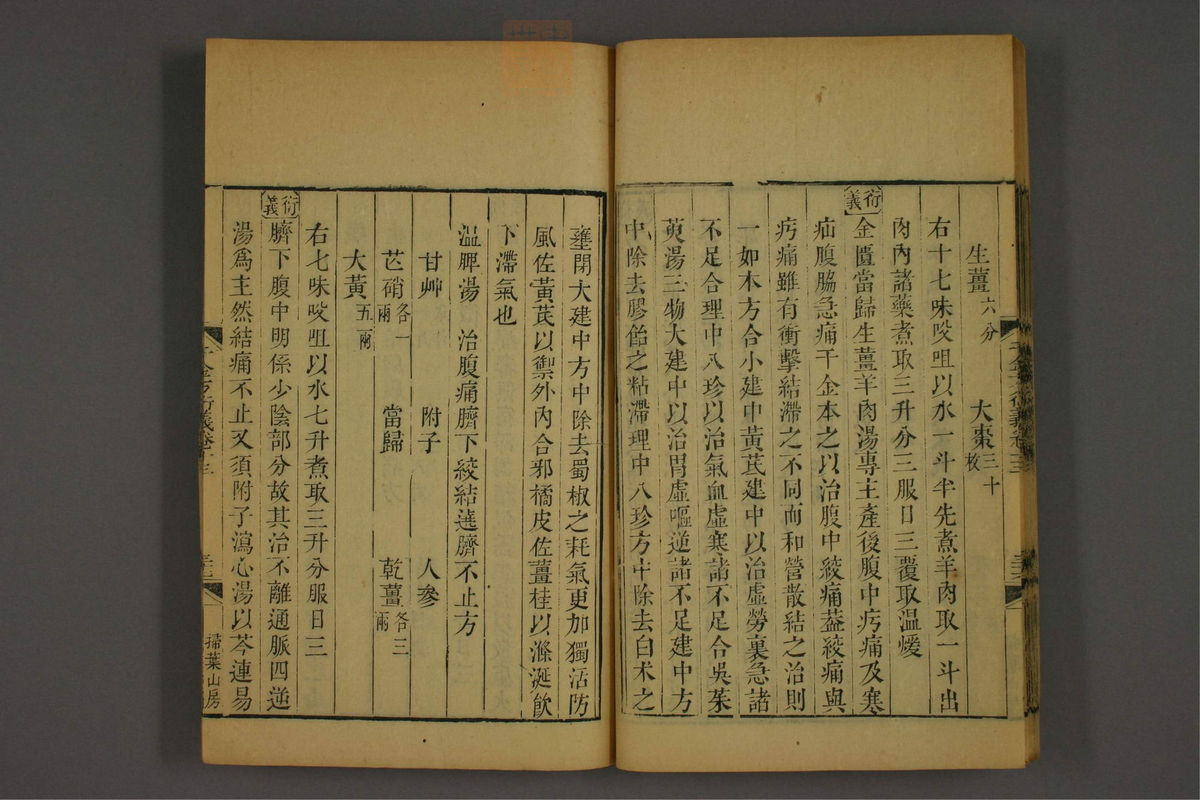 生薑六分 大棗三十枚
右十七味㕮咀以水一斗半先煮羊肉取一斗出
肉內諸藥煮取三升分三服日三覆取溫煖
衍義
金匱當歸生薑羊肉湯專主產後腹中㽲痛及寒
疝腹脇急痛千金本之以治腹中絞痛葢絞痛與
㽲痛雖有衝擊結滯之不同而和營散結之治則
一如本方合小建中黃芪建中以治虛勞裏急諸
不足合理中八珍以治氣血虛寒諸不足合吳茱
萸湯三物大建中以治胃虛嘔逆諸不足建中方
中除去膠飴之粘滯理中八珍方中除去白术之
壅閉大建中方中除去蜀椒之耗氣更加獨活防
風佐黃芪以禦外內合邪橘皮佐薑桂以滌涎飲
下滯氣也
溫脾湯 治腹痛臍下絞結遶臍不止方
甘艸 附子 人參
芒硝各一兩 當歸 乾薑各三兩
大黃五兩
右七味㕮咀以水七升煮取三升分服日三
衍義
臍下腹中明係少陰部分故其治不離通脈四逆
湯爲主然結痛不止又須附子瀉心湯以芩連易
千金方衍義卷十三
掃葉山房